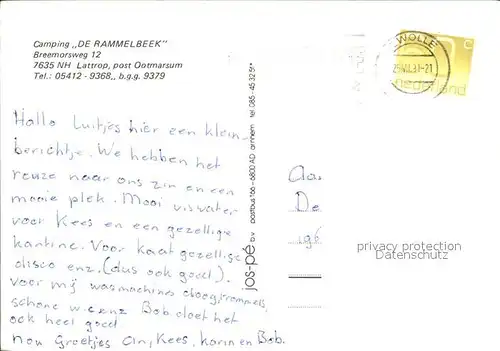 Camping „DE RAMMELBEEK"
Breemorsweg 12
7635 NH Lattrop, post Ootmarsum
Tel.: 05412 - 9368,, b.g.g. 9379
Hallo Luitjes hier een klein
berichtje. We hebben het
reuze naar ons zin en een
mooie plek. Mooi viswater
voor Kees en een gezellige
kantine. Voor Kaat gezellige
disco enz. (dus ook goed).
voor mij wasmachines droogtrommels,
schone w c enz Bob doet het
ook heel goed
Groetjes Kees, karin en Bob.
jos-pé b.v. postbus 166 - 6800 AD arnhem tel. 085-45 32 91*
ZWOLLE
nederland
Aa
De
196
privacy protection
Datenschutz